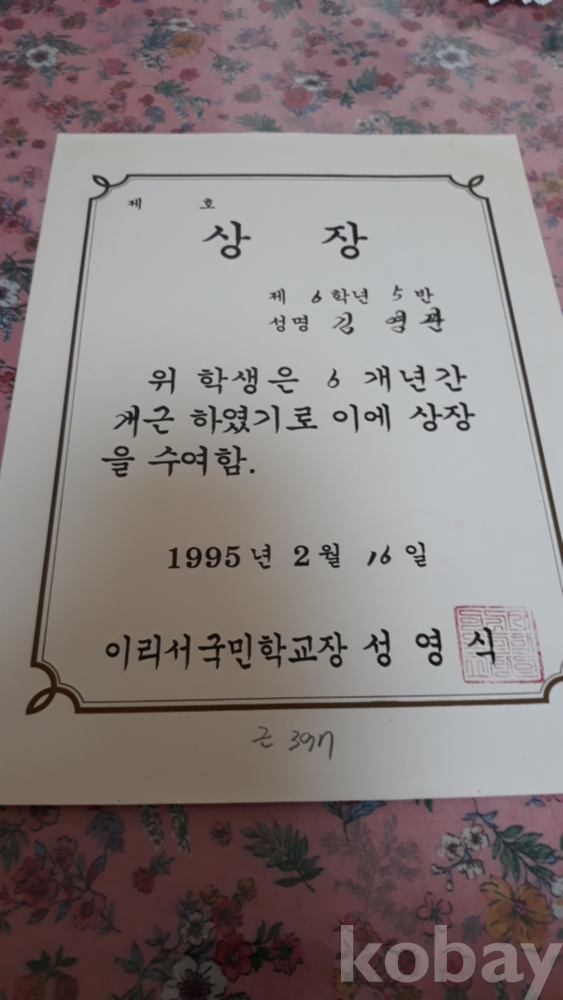 제 호
상 장
제 6 학년 5 반
성명 김 영관
위 학생은 6 개년간
개근 하였기로 이에 상장
을 수여함.
1995 년 2 월 16 일
이리서국민학교장 성 영 식
근 397
kobay